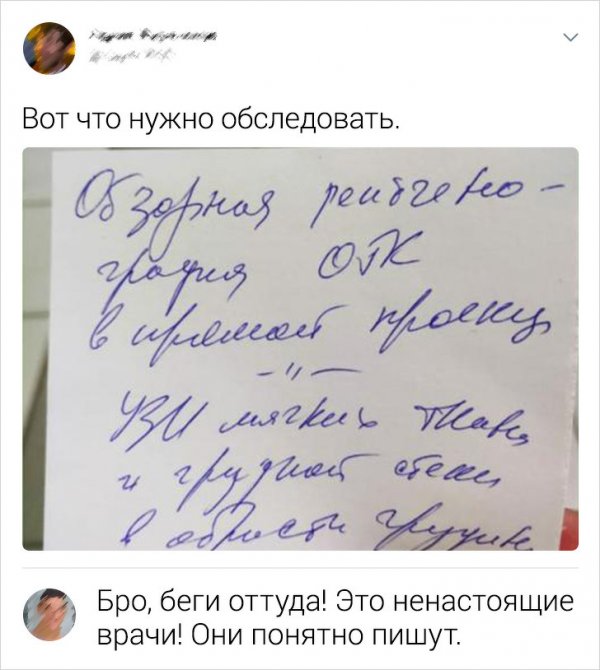 Вот что нужно обследовать.
Обзорная рентгено-
графия ОГК
в прямой проекц
-"-
УЗИ мягких ткан
и грудной стенки
в области грудин
Бро, беги оттуда! Это ненастоящие
врачи! Они понятно пишут.